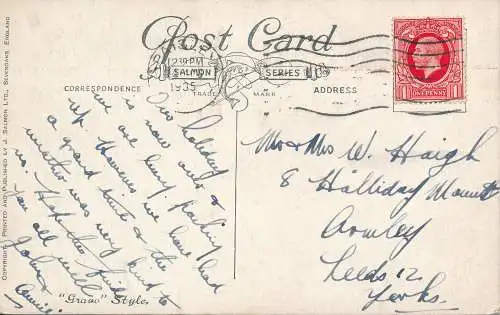 Post Card
2 30 PM
1935
SALMON SERIES
TRADE MARK
CORRESPONDENCE
ADDRESS
ONE PENNY
Our holiday
is now over &
we are busy packing
up. However we have had
a grand time & the
weather was very kind to
us. Hope this finds
you all well
John &
Annie.
Mr & Mrs W. Haigh
8 Halliday Mount
Armley
Leeds 12
Yorks.
"Grano" Style
COPYRIGHT. PRINTED AND PUBLISHED BY J. SALMON LTD., SEVENOAKS, ENGLAND